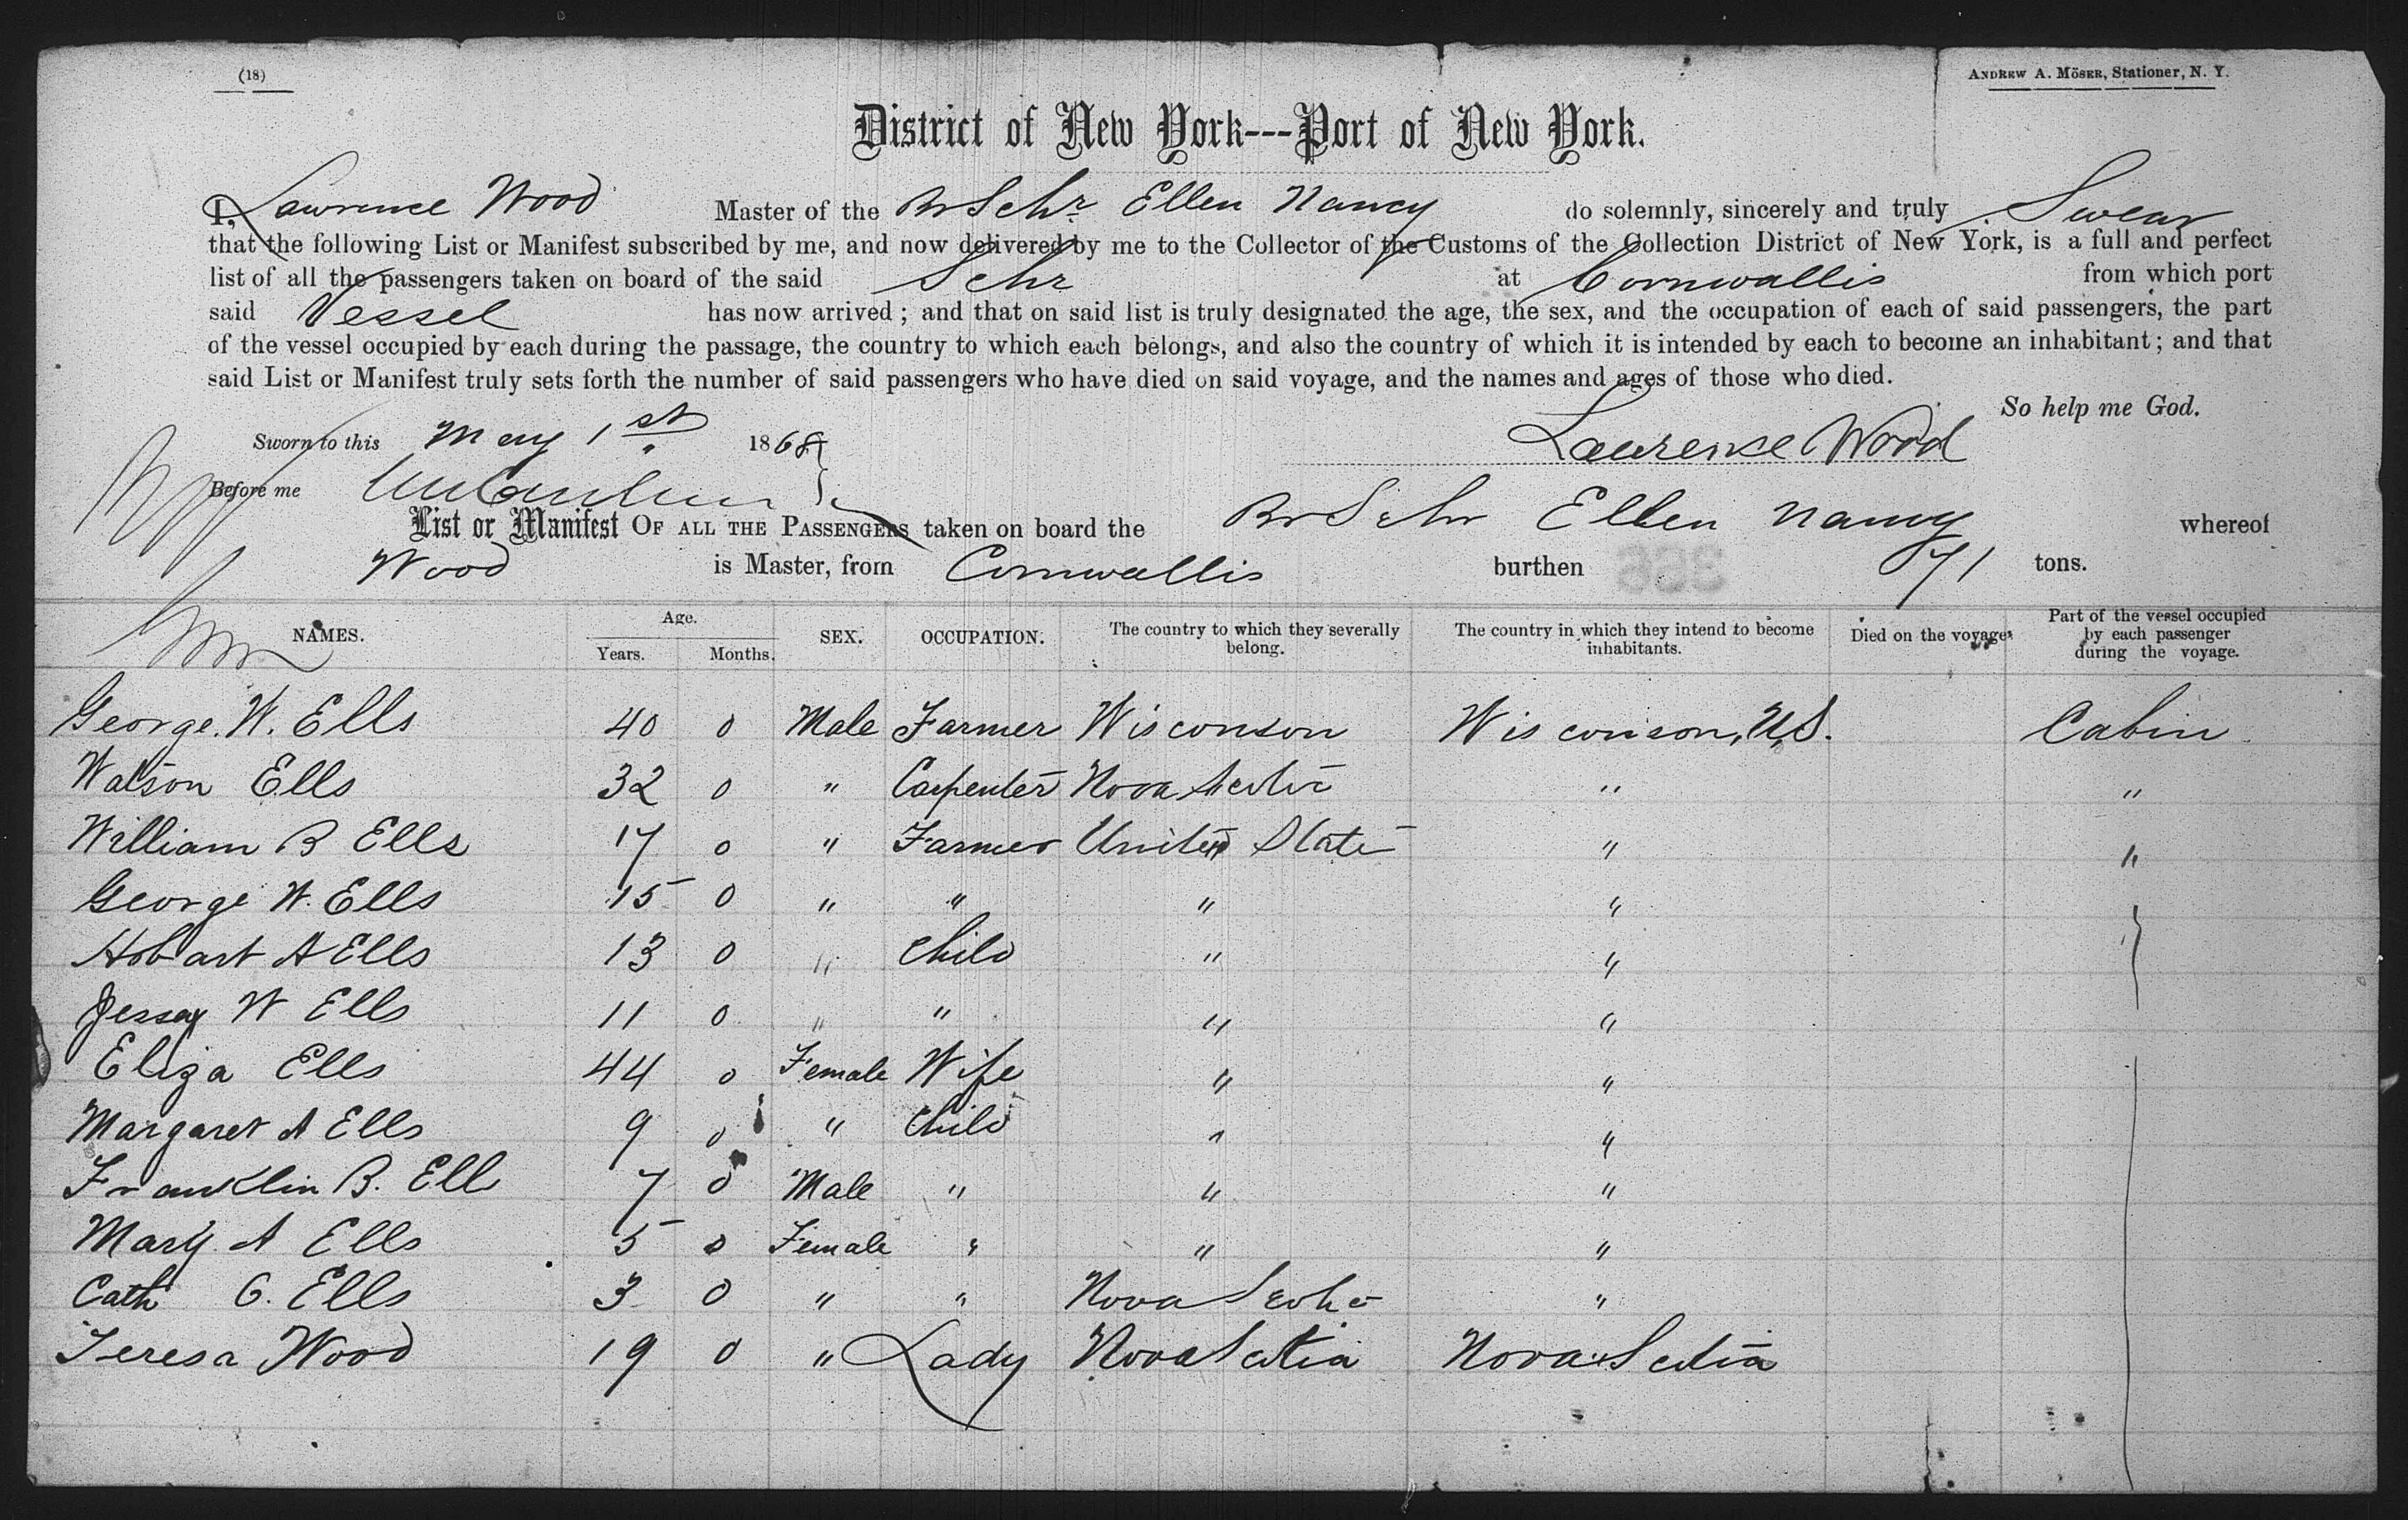 (18)
ANDREW A. MÖSER, Stationer, N. Y.
District of New York---Port of New York.
I, Lawrence Wood Master of the Br Schr Ellen Nancy do solemnly, sincerely and truly Swear
that the following List or Manifest subscribed by me, and now delivered by me to the Collector of the Customs of the Collection District of New York, is a full and perfect
list of all the passengers taken on board of the said Schr at Cornwallis from which port
said Vessel has now arrived; and that on said list is truly designated the age, the sex, and the occupation of each of said passengers, the part
of the vessel occupied by each during the passage, the country to which each belongs, and also the country of which it is intended by each to become an inhabitant; and that
said List or Manifest truly sets forth the number of said passengers who have died on said voyage, and the names and ages of those who died.
So help me God.
Sworn to this May 1st 1868 Lawrence Wood
Before me
List or Manifest OF ALL THE PASSENGERS taken on board the Br Schr Ellen Nancy whereof
Wood is Master, from Cornwallis burthen 71 tons.
NAMES. Age. Years. Months. SEX. OCCUPATION. The country to which they severally belong. The country in which they intend to become inhabitants. Died on the voyage. Part of the vessel occupied by each passenger during the voyage.
George. W. Ells 40 0 Male Farmer Wisconson Wisconson, U.S. Cabin
Watson Ells 32 0 " Carpenter Nova Scotia " "
William B Ells 17 0 " Farmer United State " "
George W. Ells 15 0 " " " "
Hobart A Ells 13 0 " Child " "
Jessey W Ells 11 0 " " " "
Eliza Ells 44 0 Female Wife " "
Margaret A Ells 9 0 " Child " "
Franklin B. Ells 7 0 Male " " "
Mary A Ells 5 0 Female " " "
Cath C. Ells 3 0 " " Nova Scotia "
Teresa Wood 19 0 " Lady Nova Scotia Nova Scotia